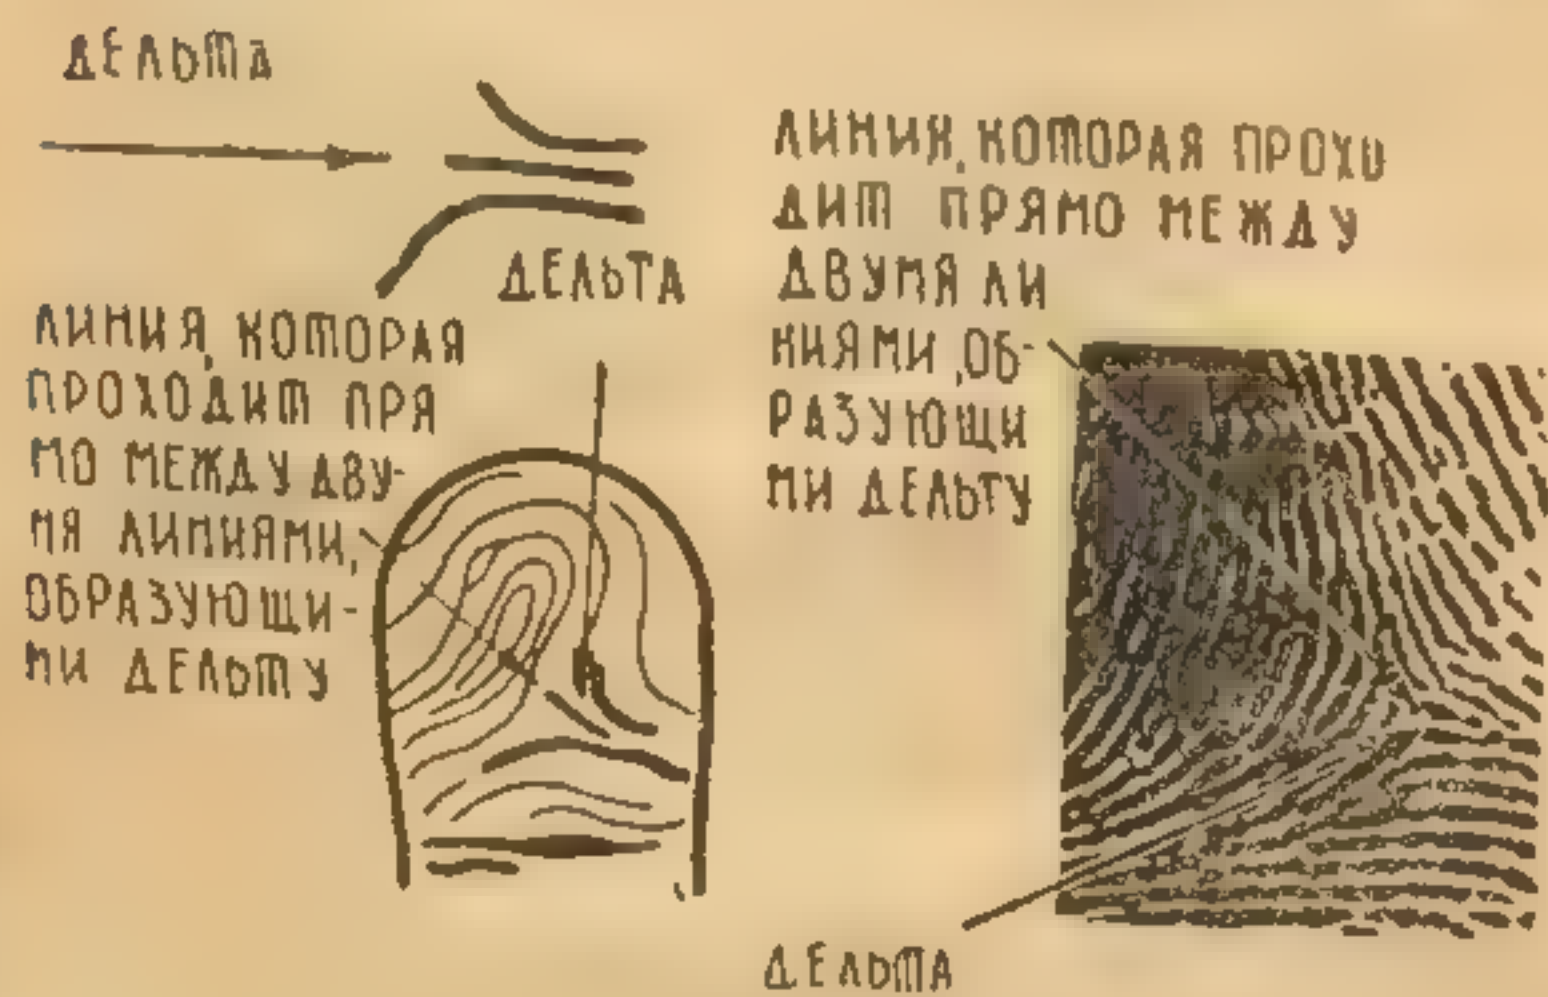 ДЕЛЬТА
ДЕЛЬТА
ЛИНИЯ, КОТОРАЯ
ПРОХОДИТ ПРЯ
МО МЕЖДУ ДВУ-
МЯ ЛИНИЯМИ,
ОБРАЗУЮЩИ-
МИ ДЕЛЬТУ
ЛИНИЯ, КОТОРАЯ ПРОХИ
ДИТ ПРЯМО МЕЖДУ
ДВУМЯ ЛИ
НИЯМИ, ОБ-
РАЗУЮЩИ
МИ ДЕЛЬТУ
ДЕЛЬТА